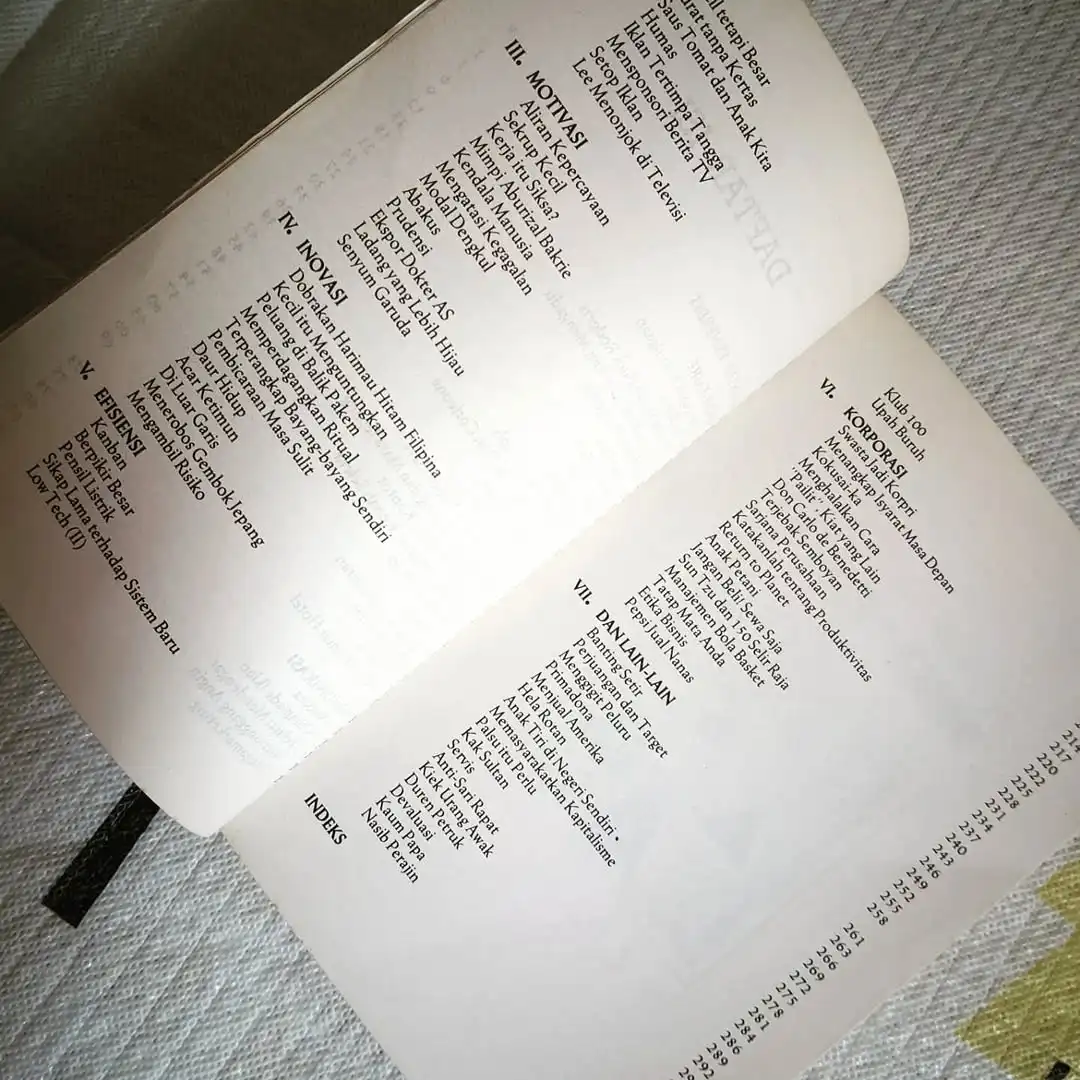 tetapi Besar
tanpa Kertas
Saus Tomat dan Anak Kita
Humas
Iklan Tertimpa Tangga
Mensponsori Berita TV
Setop Iklan
Lee Menonjok di Televisi
III. MOTIVASI
Aliran Kepercayaan
Sekrup Kecil
Kerja itu Siksa?
Mimpi Aburizal Bakrie
Kendala Manusia
Mengatasi Kegagalan
Modal Dengkul
Abakus
Prudensi
Ekspor Dokter AS
Ladang yang Lebih Hijau
Senyum Garuda
IV. INOVASI
Dobrakan Harimau Hitam Filipina
Kecil itu Menguntungkan
Peluang di Balik Pakem
Memperdagangkan Ritual
Terperangkap Bayang-bayang Sendiri
Pembicaraan Masa Sulit
Daur Hidup
Acar Ketimun
Di Luar Garis
Menerobos Gembok Jepang
Mengambil Risiko
V. EFISIENSI
Kanban
Berpikir Besar
Pensil Listrik
Sikap Lama terhadap Sistem Baru
Low Tech (II)
Klub 100
Upah Buruh
VI. KORPORASI
Swasta Jadi Korpri
Menangkap Isyarat Masa Depan
Kokusai-ka
Menghalalkan Cara
'Pailit,' Kiat yang Lain
Don Carlo de Benedetti
Terjebak Semboyan
Sarjana Perusahaan
Katakanlah tentang Produktivitas
Return to Planet
Anak Petani
Jangan Beli Sewa Saja
Sun Tzu dan 150 Selir Raja
Manajemen Bola Basket
Tatap Mata Anda
Etika Bisnis
Pepsi Jual Nanas
VII. DAN LAIN-LAIN
Banting Setir
Perjuangan dan Target
Menggigit Peluru
Primadona
Menjual Amerika
Hela Rotan
Anak Tiri di Negeri Sendiri
Memasyarakatkan Kapitalisme
Palsu itu Perlu
Kak Sultan
Servis
Anti-Sari Rapat
Kiek Urang Awak
Duren Petruk
Devaluasi
Kaum Papa
Nasib Perajin
INDEKS
214
217
220
222
225
228
231
234
237
240
243
246
249
252
255
258
261
263
266
269
272
275
278
281
284
286
289
292